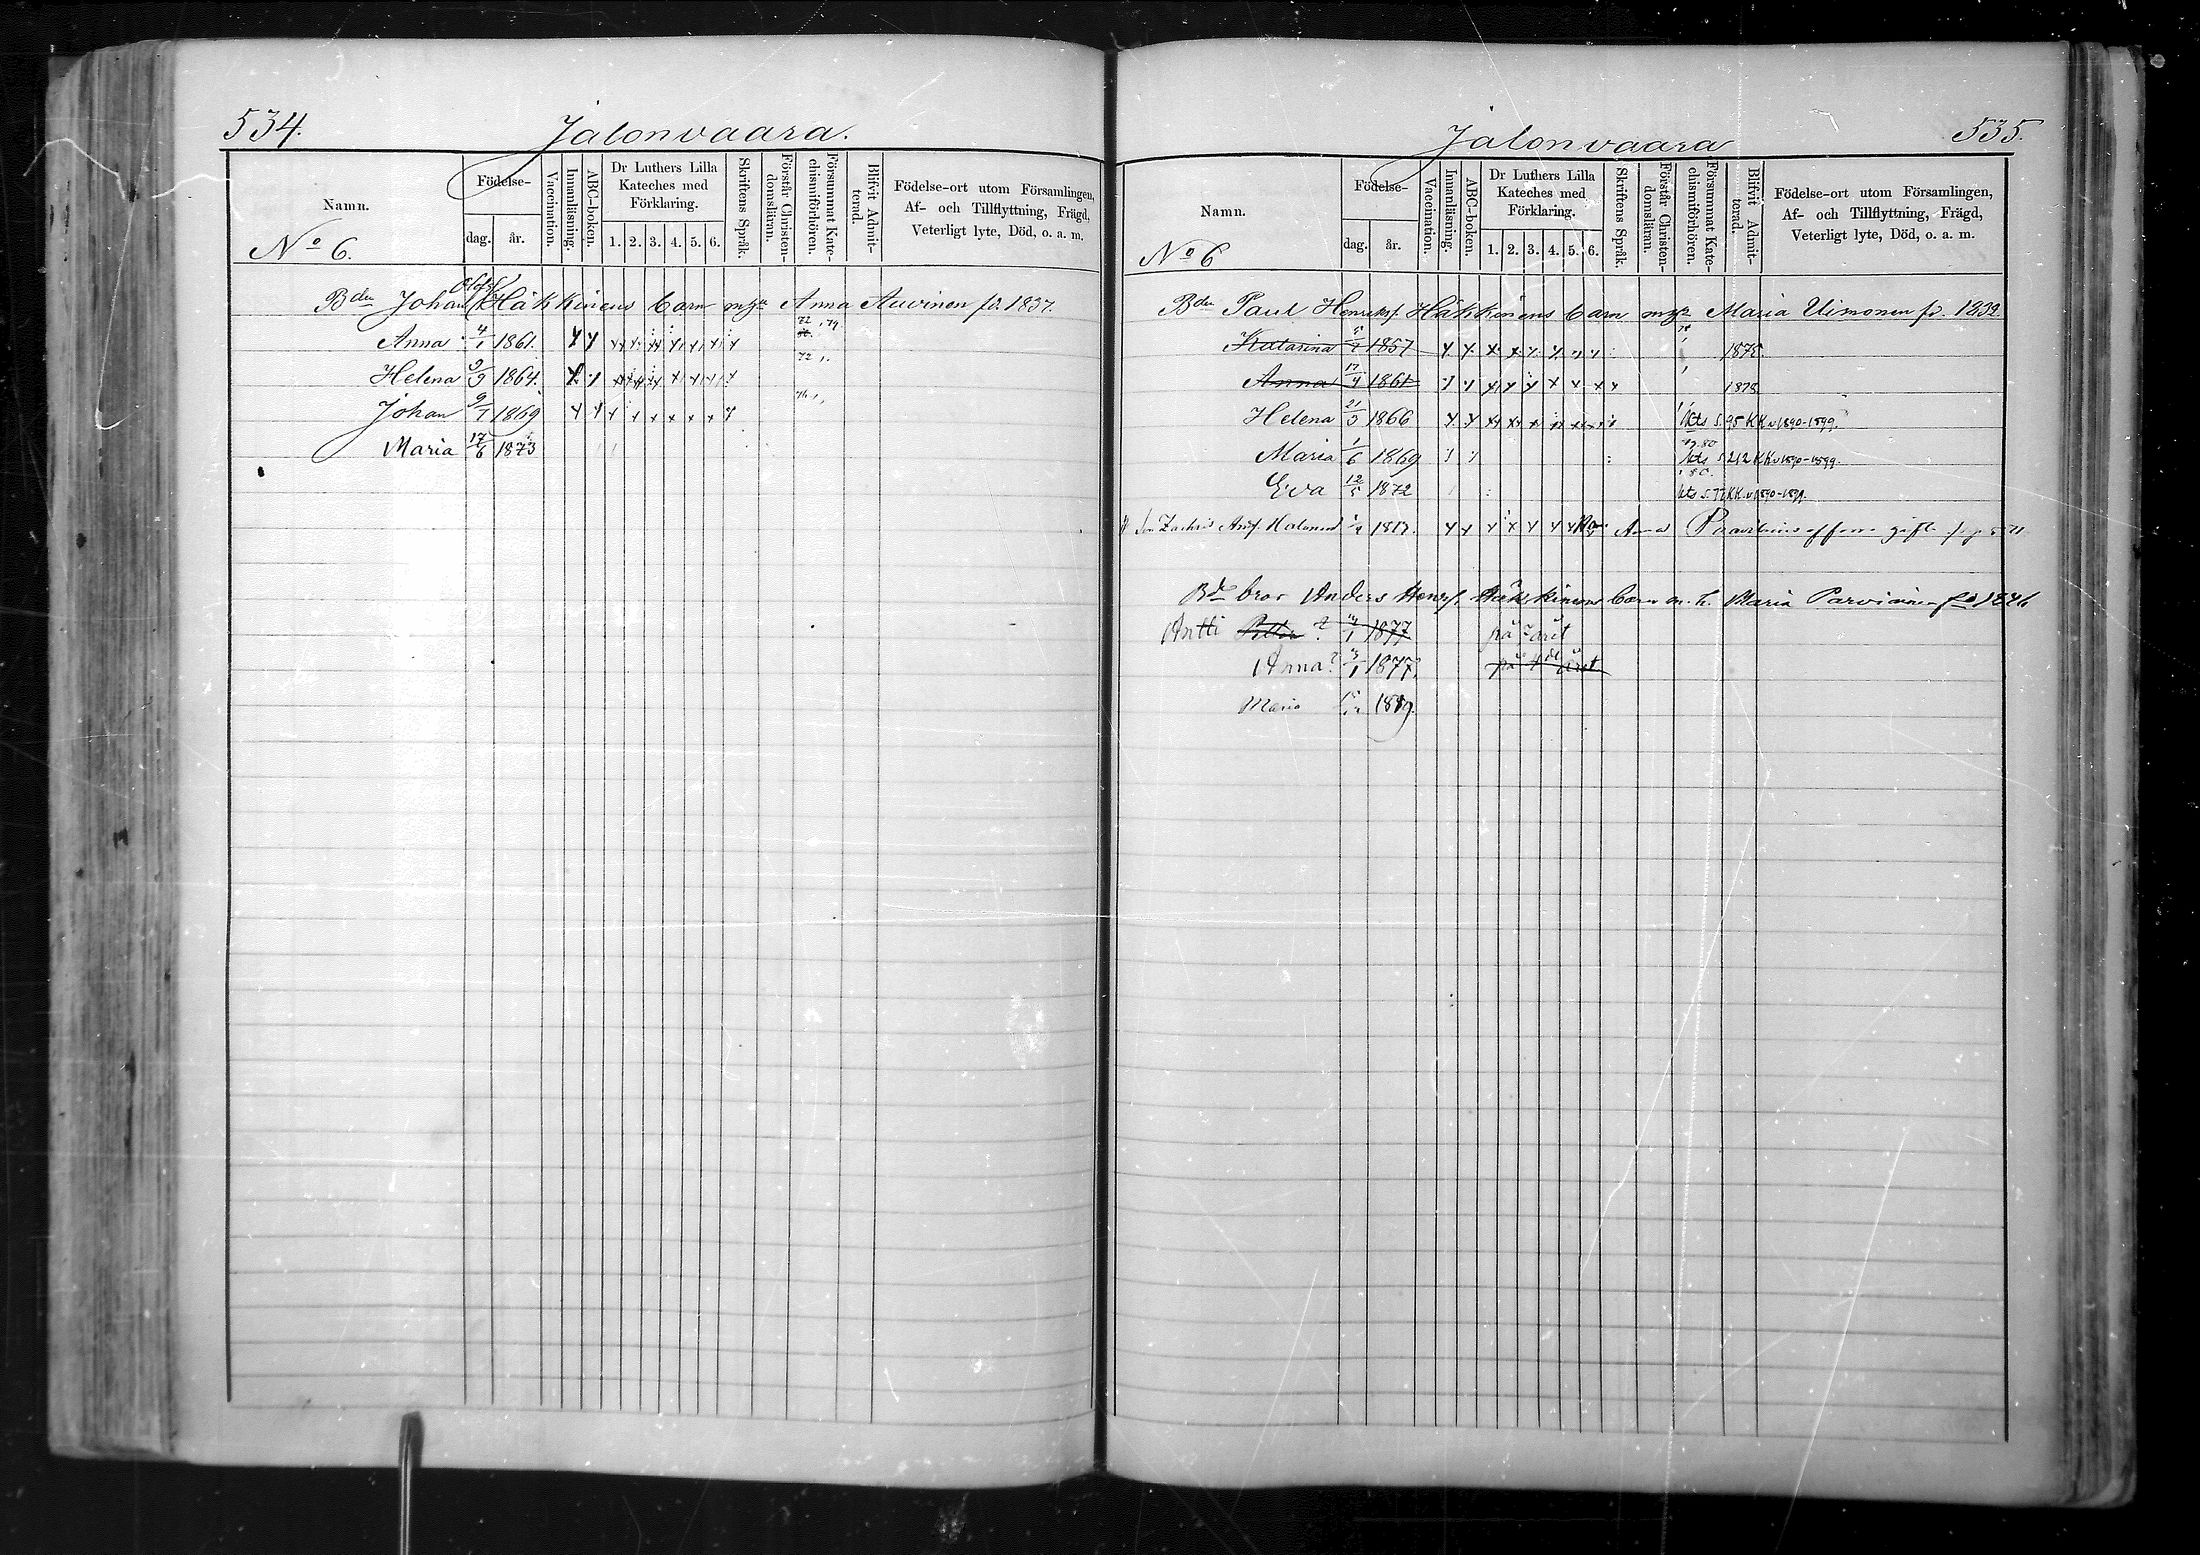 534.
Jalonvaara.
Namn.
No 6.
Födelse-
dag.
år.
Vaccination.
Innanläsning.
ABC-boken.
Dr Luthers Lilla
Kateches med
Förklaring.
1. 2. 3. 4. 5. 6.
Skriftens Språk.
Förstår Christen-
domsläran.
Försummat Kate-
chismiförhören.
Blifvit Admit-
terad.
Födelse-ort utom Församlingen,
Af- och Tillflyttning, Frägd,
Veterligt lyte, Död, o. a. m.
Olofsf.
Bden Johan Häkkinens barn Anna Auvinen fd. 1837.
Anna 4/1 1861.
Helena 1864.
Johan 9/1 1869
Maria 17/6 1873
535.
Jalonvaara
Namn.
No 6
Födelse-
dag.
år.
Vaccination.
Innanläsning.
ABC-boken.
Dr Luthers Lilla
Kateches med
Förklaring.
1. 2. 3. 4. 5. 6.
Skriftens Språk.
Förstår Christen-
domsläran.
Försummat Kate-
chismiförhören.
Blifvit Admit-
terad.
Födelse-ort utom Församlingen,
Af- och Tillflyttning, Frägd,
Veterligt lyte, Död, o. a. m.
Bden Paul Henriksf. Häkkinens barn Maria Uimonen fd. 1832
Katarina 1857 1875.
Anna 17/4 1861 1878
Helena 21/3 1866 kts s. 95 KK v 1890-1899.
Maria 1/6 1869 kts s 212 KK v 1890-1899.
Eva 12/5 1872 kts s. 77 KK v 1890-1899.
Zachris Halonen 1817. gift
Bd bror Anders Henrsf. Häkkinens barn m. h. Maria Parviainen 1846
Antti 1877 på året
Anna? 1877? på året
Maria 1889.